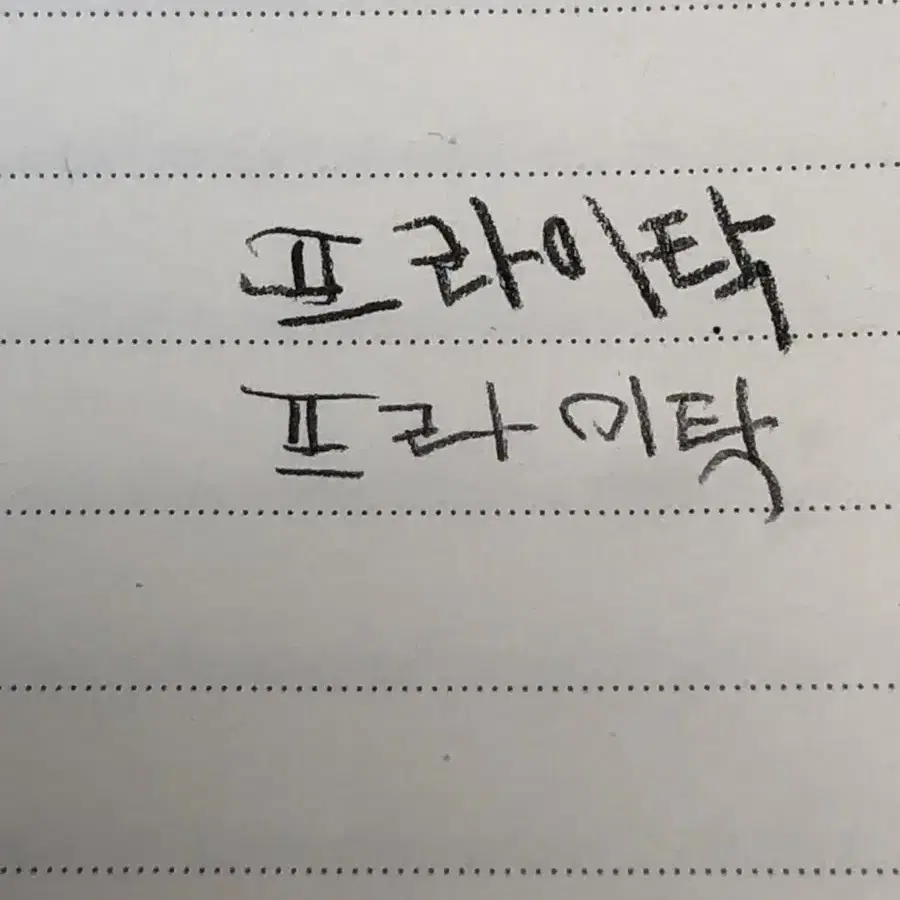 프라이탁
프라이탁